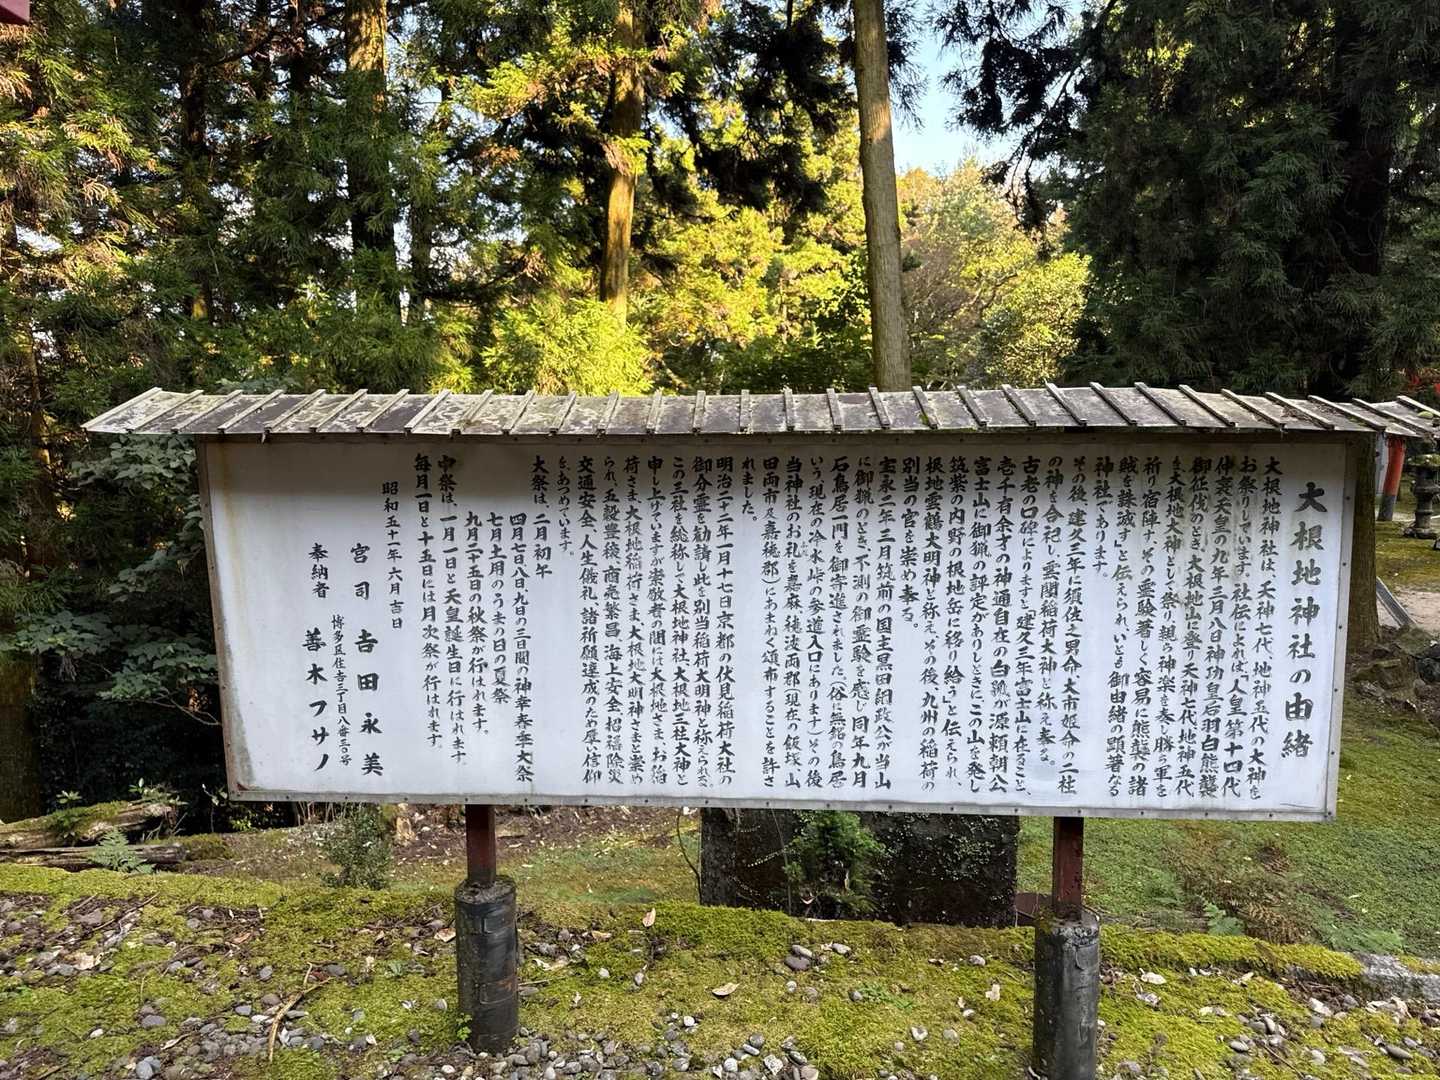 大根地神社の由緒
大根地神社は、天神七代、地神五代の大神を
お祭りしています。社伝によれば、「人皇第十四代
仲哀天皇の九年三月八日神功皇后羽白熊襲
御征伐のとき、大根地山に登り天神七代地神五代
を大根地大神として祭り、親ら神楽を奏し勝ち軍を
祈り宿陣す、その霊験著しく容易に熊襲の諸
賊を誅滅す」と伝えられ、いとも御由緒の顕著なる
神社であります。
その後、建久三年に須佐之男命、大市姫命の二柱
の神を合祀し、雲閣稲荷大神と称え奉る。
古老の口碑によりますと「建久三年富士山に在ること、
壱千有余才の神通自在の白狐が源頼朝公
富士山に御猟の評定がありしときにこの山を発し
筑紫の内野の根地岳に移り給う」と伝えられ、
根地雲鶴大明神と称え、その後、九州の稲荷の
別当の宮を崇め奉る。
宝永二年三月筑前の国主黒田綱政公が当山
に御猟のとき、不測の御霊験を感じ同年九月
石鳥居一門を御寄進されました。(俗に無銘の鳥居
という、現在の冷水峠の参道入口にあります)その後
当神社のお札を嘉麻穂波両郡(現在の飯塚、山
田両市及嘉穂郡)にあまねく頒布することを許さ
れました。
明治二十二年一月十七日京都の伏見稲荷大社の
御分霊を勧請し此を別当稲荷大明神と称えられる。
この三社を総称して大根地神社、大根地三社大神と
申し上げていますが崇敬者の間には大根地さま、お稲
荷さま、大根地稲荷さま、大根地大明神さまと崇め
られ、五穀豊穣、商売繁昌、海上安全、招福除災
交通安全、人生儀礼、諸祈願達成のため厚い信仰
をあつめています。
大祭は、二月初午
四月七日八日九日の三日間の神幸奉年大祭
七月土用のうまの日の夏祭
九月二十五日の秋祭が行はれます。
中祭は、一月一日と天皇誕生日に行はれます。
毎月一日と十五日には月次祭が行はれます。
昭和五十一年六月吉日
宮司 吉田永美
博多区住吉三丁目八番三〇号
奉納者 善木フサノ